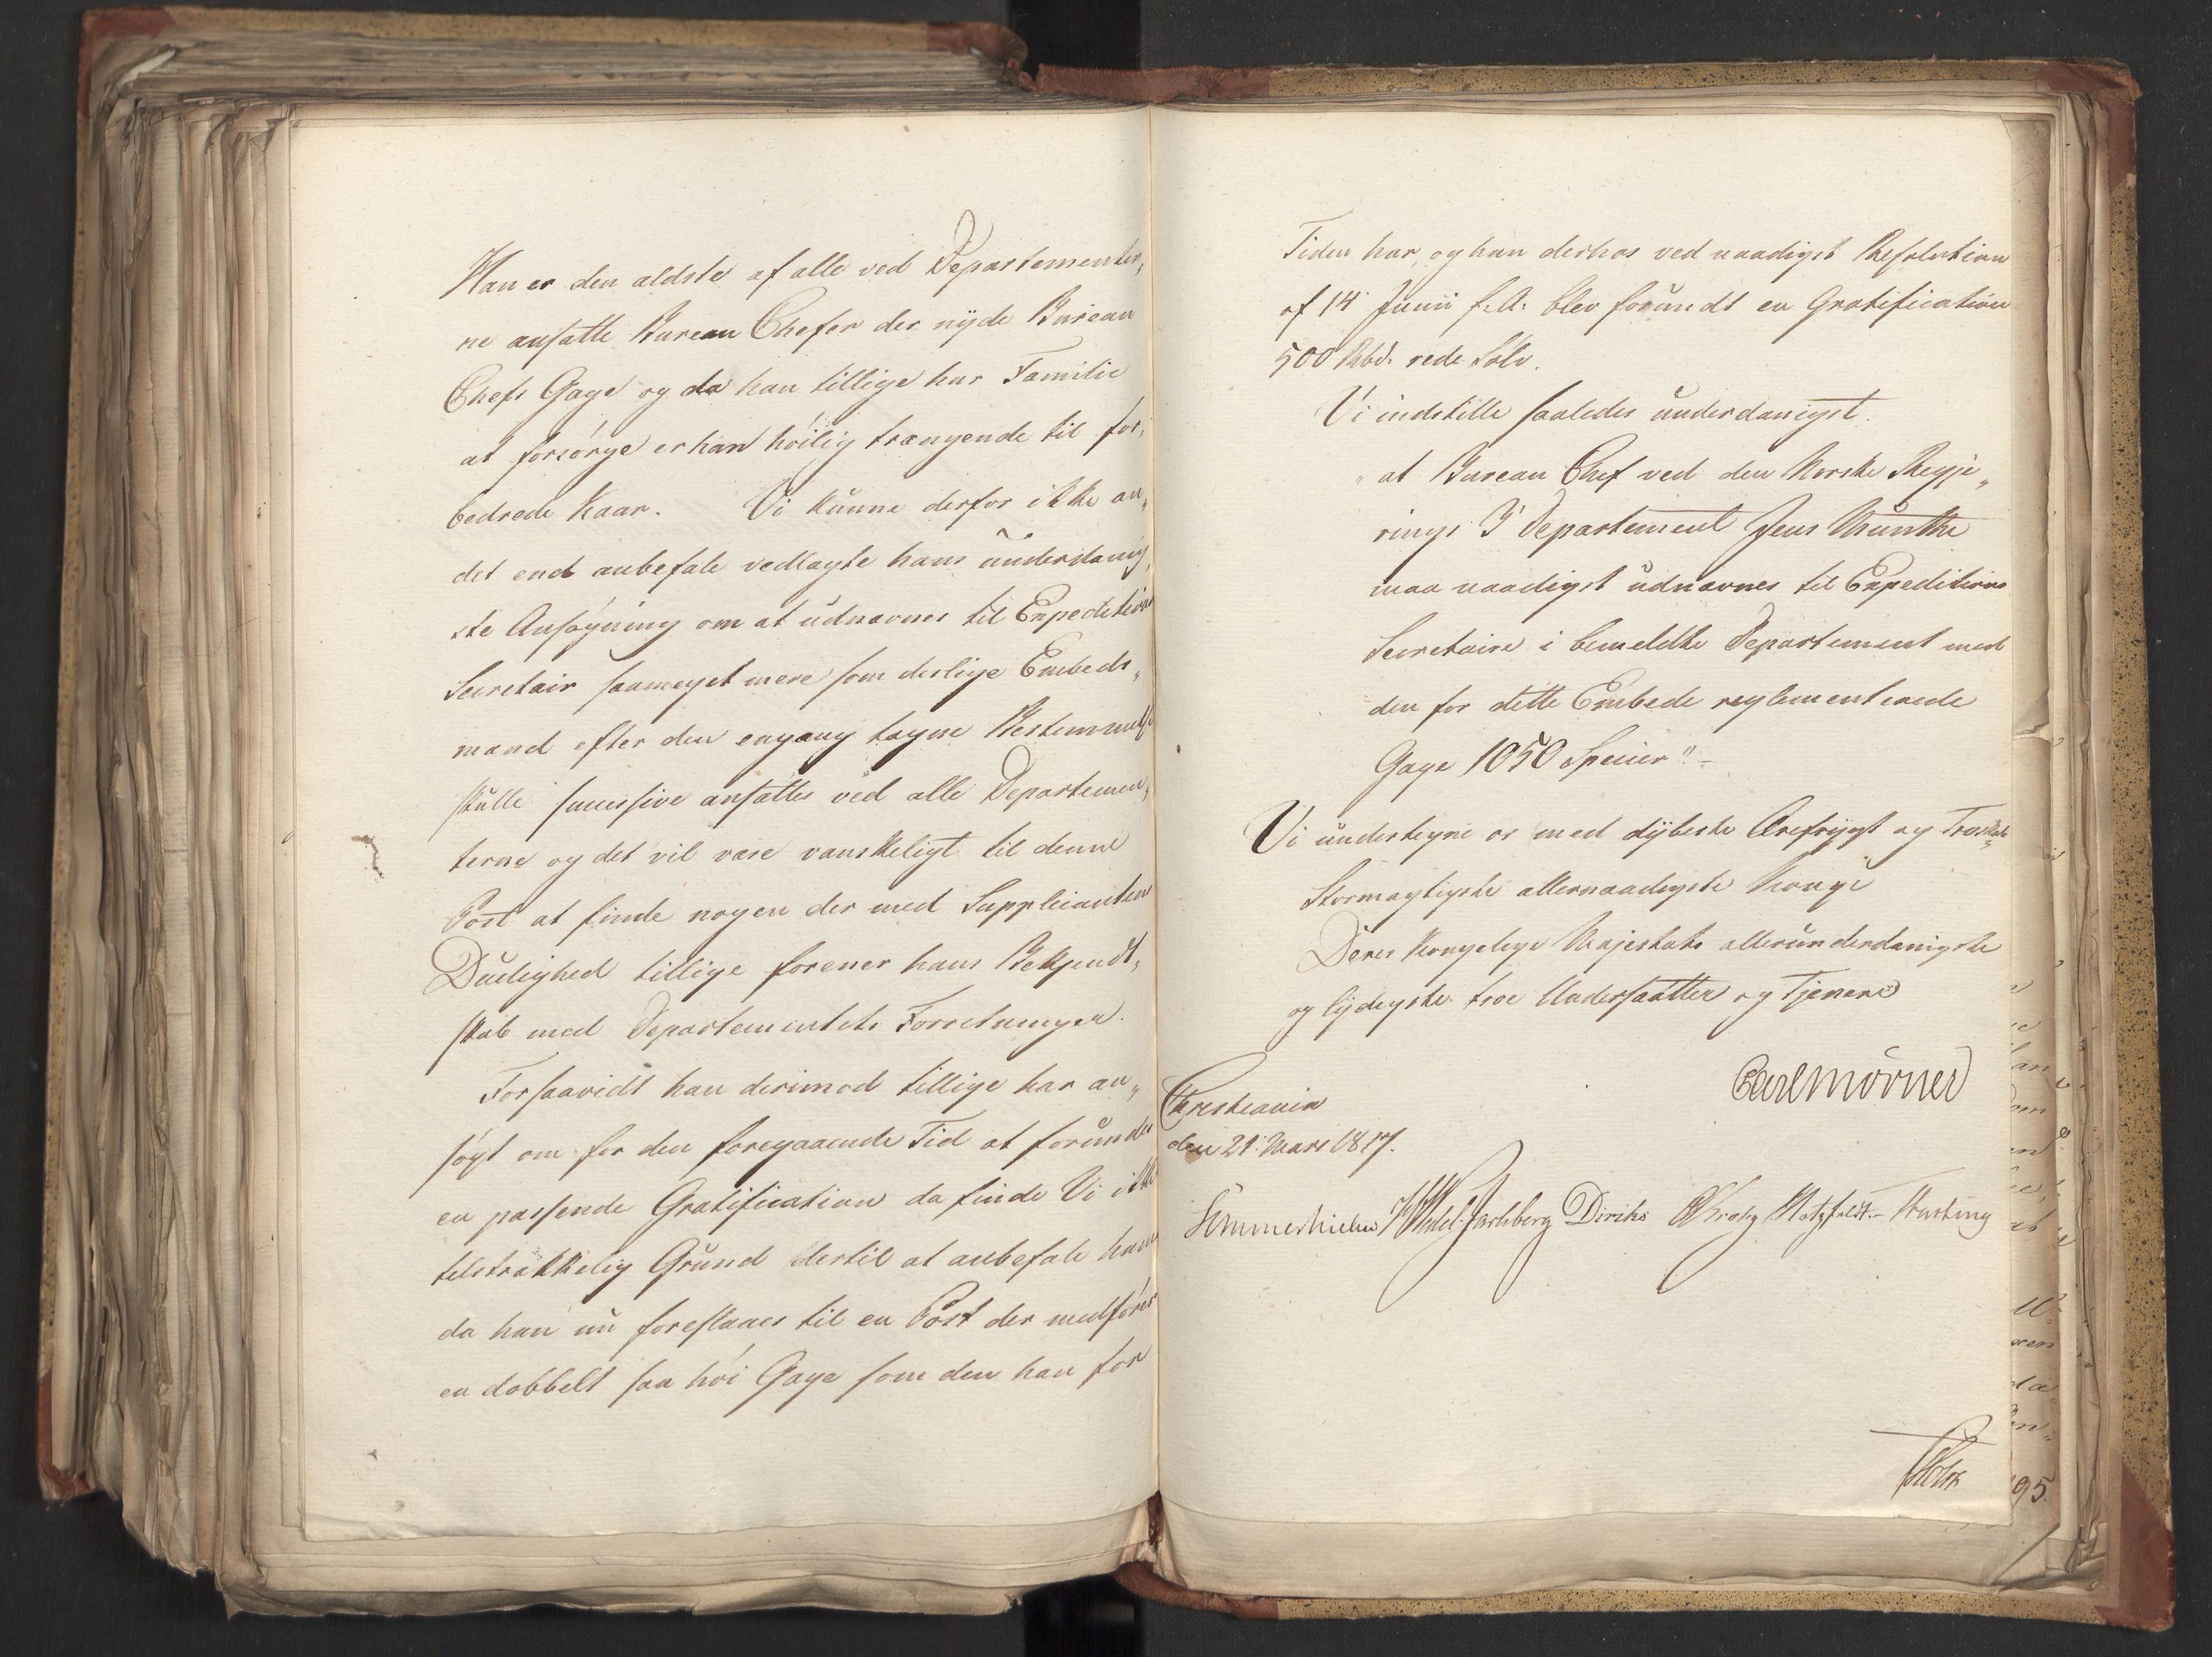 Han er den ældste af alle ved Departementer„
ne ansatte Bureau Chefer der nyde Bureau
Chefs Gage og da han tillige har Familie
at forsørge er han høilig trængende til for„
bedrede Kaar. Vi kunne derfor ikke an„
det end anbefale vedlagte hans underdanig„
ste Ansøgning om at udnævnes til Expeditions
Secretair saameget mere som deslige Embeds„
mand efter den engang tagne Bestemmelse
skulle successive ansættes ved alle Departemen„
terne og det vil være vanskeligt til denne
Post at finde nogen der med Supplicantens
Duelighed tillige forener hans Bekjendt„
skab med Departementets Forretninger.
Forsaavidt han derimod tillige har an„
søgt om for den foregaaende Tid at forundes
en passende Gratification da finde Vi ikke
tilstrækkelig Grund dertil at anbefale ham
da han nu foreslaaes til en Post der medfører
en dobbelt saa høi Gage som den han før
Tiden har, og han derhos ved naadigst Resolution
af 14 Junii f. A. blev forundt en Gratification
500 Rbd. rede Sølv.
Vi indstille saaledes underdanigst.
„at Bureau Chef ved den Norske Regje„
rings 3 Departement Jens Munthe
maa naadigst udnævnes til Expeditions
Secretaire i bemeldte Departement med
den for dette Embede reglementerede
Gage 1050 Specier“.-
Vi undertegne os med dybeste Ærefrygt og Troskab
Stormægtigste allernaadigste Konge
Deres Kongelige Majestæts allerunderdanigste
og lydigste troe Undersaatter og Tjenere
Carl Mörner
Christiania
den 21 Mars 1817.
Sommerhielm HWedel-Jarlsberg Diriks Krohg Motzfeldt Hasting
Holst
95.